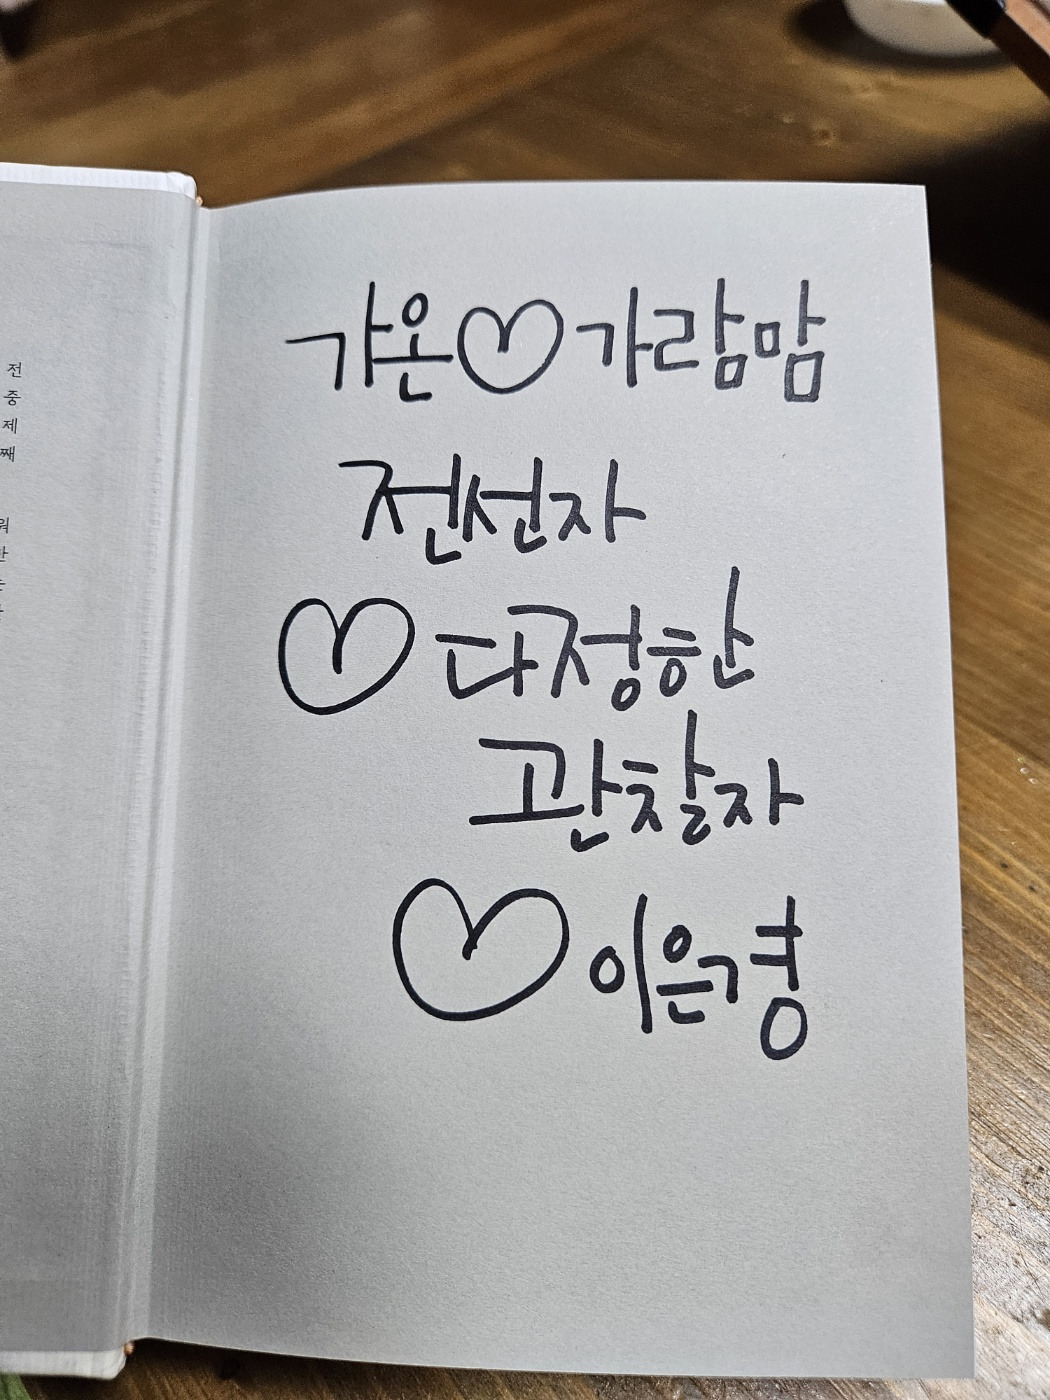 전
중
제
째
워
가온♡가람맘
전선자
♡다정한
관찰자
♡이은경